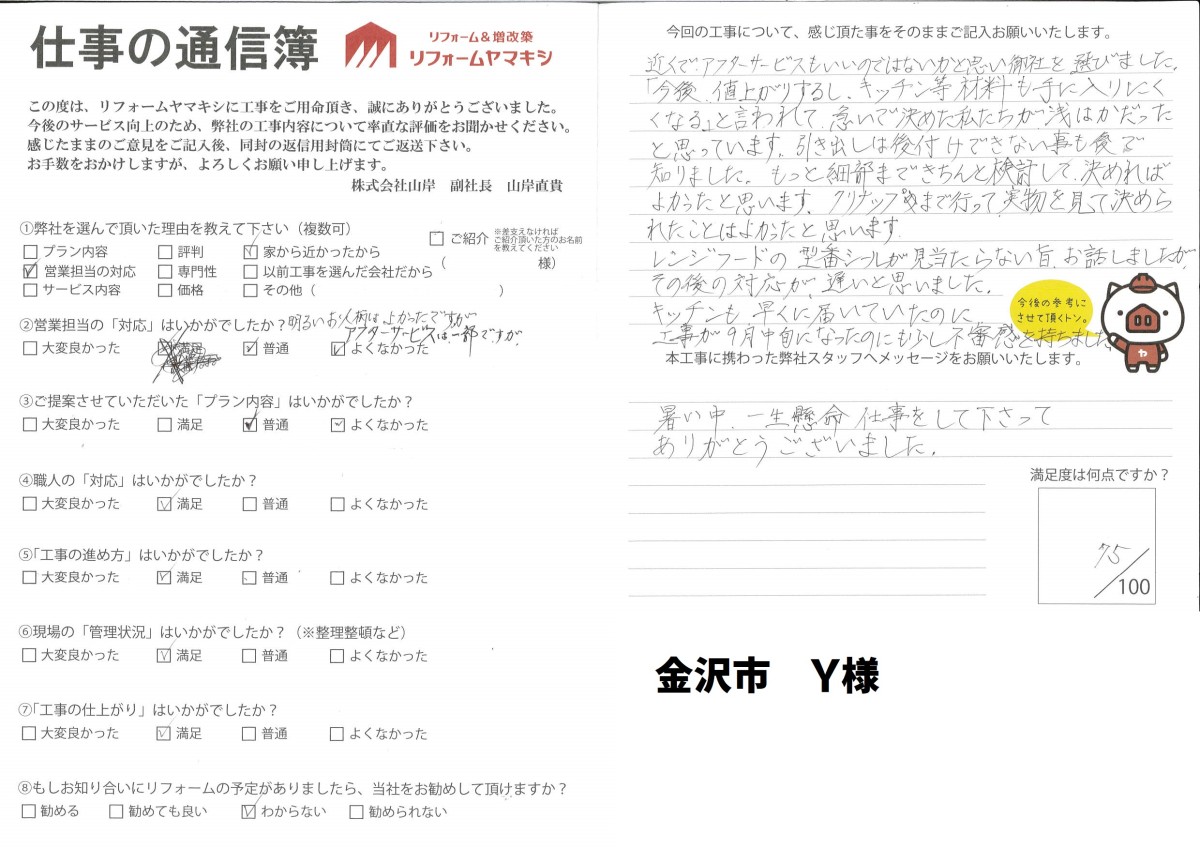 仕事の通信簿
リフォーム&増改築
リフォームヤマキシ
この度は、リフォームヤマキシに工事をご用命頂き、誠にありがとうございました。
今後のサービス向上のため、弊社の工事内容について率直な評価をお聞かせください。
感じたままのご意見をご記入後、同封の返信用封筒にてご返送下さい。
お手数をおかけしますが、よろしくお願い申し上げます。
株式会社山岸 副社長 山岸直貴
①弊社を選んで頂いた理由を教えて下さい（複数可）
□プラン内容 □評判 ☑家から近かったから □ご紹介 ※差支えなければご紹介頂いた方のお名前を教えてください
☑営業担当の対応 □専門性 □以前工事を選んだ会社だから （ 様）
□サービス内容 □価格 □その他（ ）
②営業担当の「対応」はいかがでしたか？明るいお人柄は良かったですが
アフターサービスは一部ですが
□大変良かった 満足 ☑普通 ☑よくなかった
③ご提案させていただいた「プラン内容」はいかがでしたか？
□大変良かった □満足 ☑普通 ☑よくなかった
④職人の「対応」はいかがでしたか？
□大変良かった ☑満足 □普通 □よくなかった
⑤「工事の進め方」はいかがでしたか？
□大変良かった ☑満足 □普通 □よくなかった
⑥現場の「管理状況」はいかがでしたか？（※整理整頓など）
□大変良かった ☑満足 □普通 □よくなかった
⑦「工事の仕上がり」はいかがでしたか？
□大変良かった ☑満足 □普通 □よくなかった
⑧もしお知り合いにリフォームの予定がありましたら、当社をお勧めして頂けますか？
□勧める □勧めても良い ☑わからない □勧められない
今回の工事について、感じ頂た事をそのままご記入お願いいたします。
近くで、アフターサービスもいいのではないかと思い御社を選びました。
「今後、値上がりするし、キッチン等材料も手に入りにく
くなる」と言われて、急いで決めた私たちが浅はかだった
と思っています。引き出しは後付けできない事も後で
知りました。もっと細部まできちんと検討して、決めれば
よかったと思います。クリナップまで行って実物を見て決めら
れたことはよかったと思います。
レンジフードの型番シールが見当たらない旨、お話しましたが
その後の対応が、遅いと思いました。
キッチンも早くに届いていたのに、
工事が9月中旬になったのにも少し不審感を持ちました。
今後の参考に
させて頂くトン。
ヤ
本工事に携わった弊社スタッフへメッセージをお願いいたします。
暑い中、一生懸命仕事をして下さって
ありがとうございました。
満足度は何点ですか？
75/100
金沢市 Y様